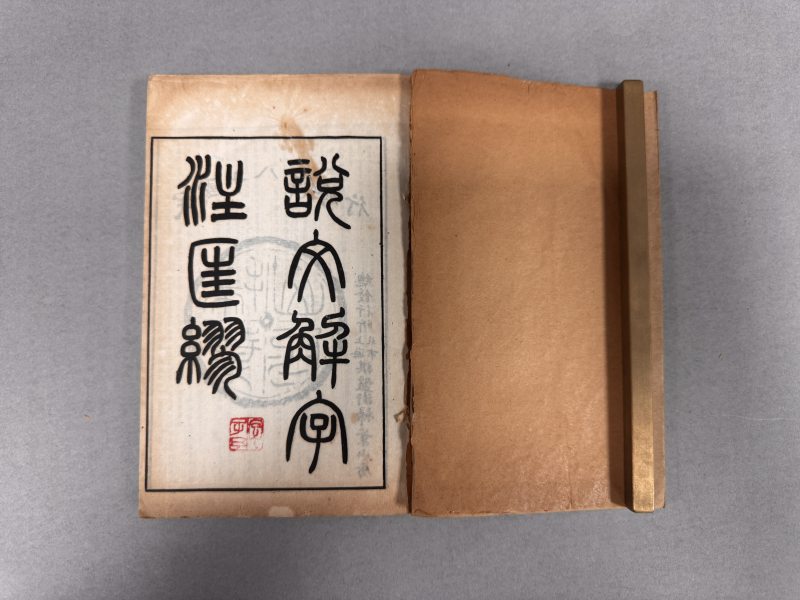 說文解字
注匡繆